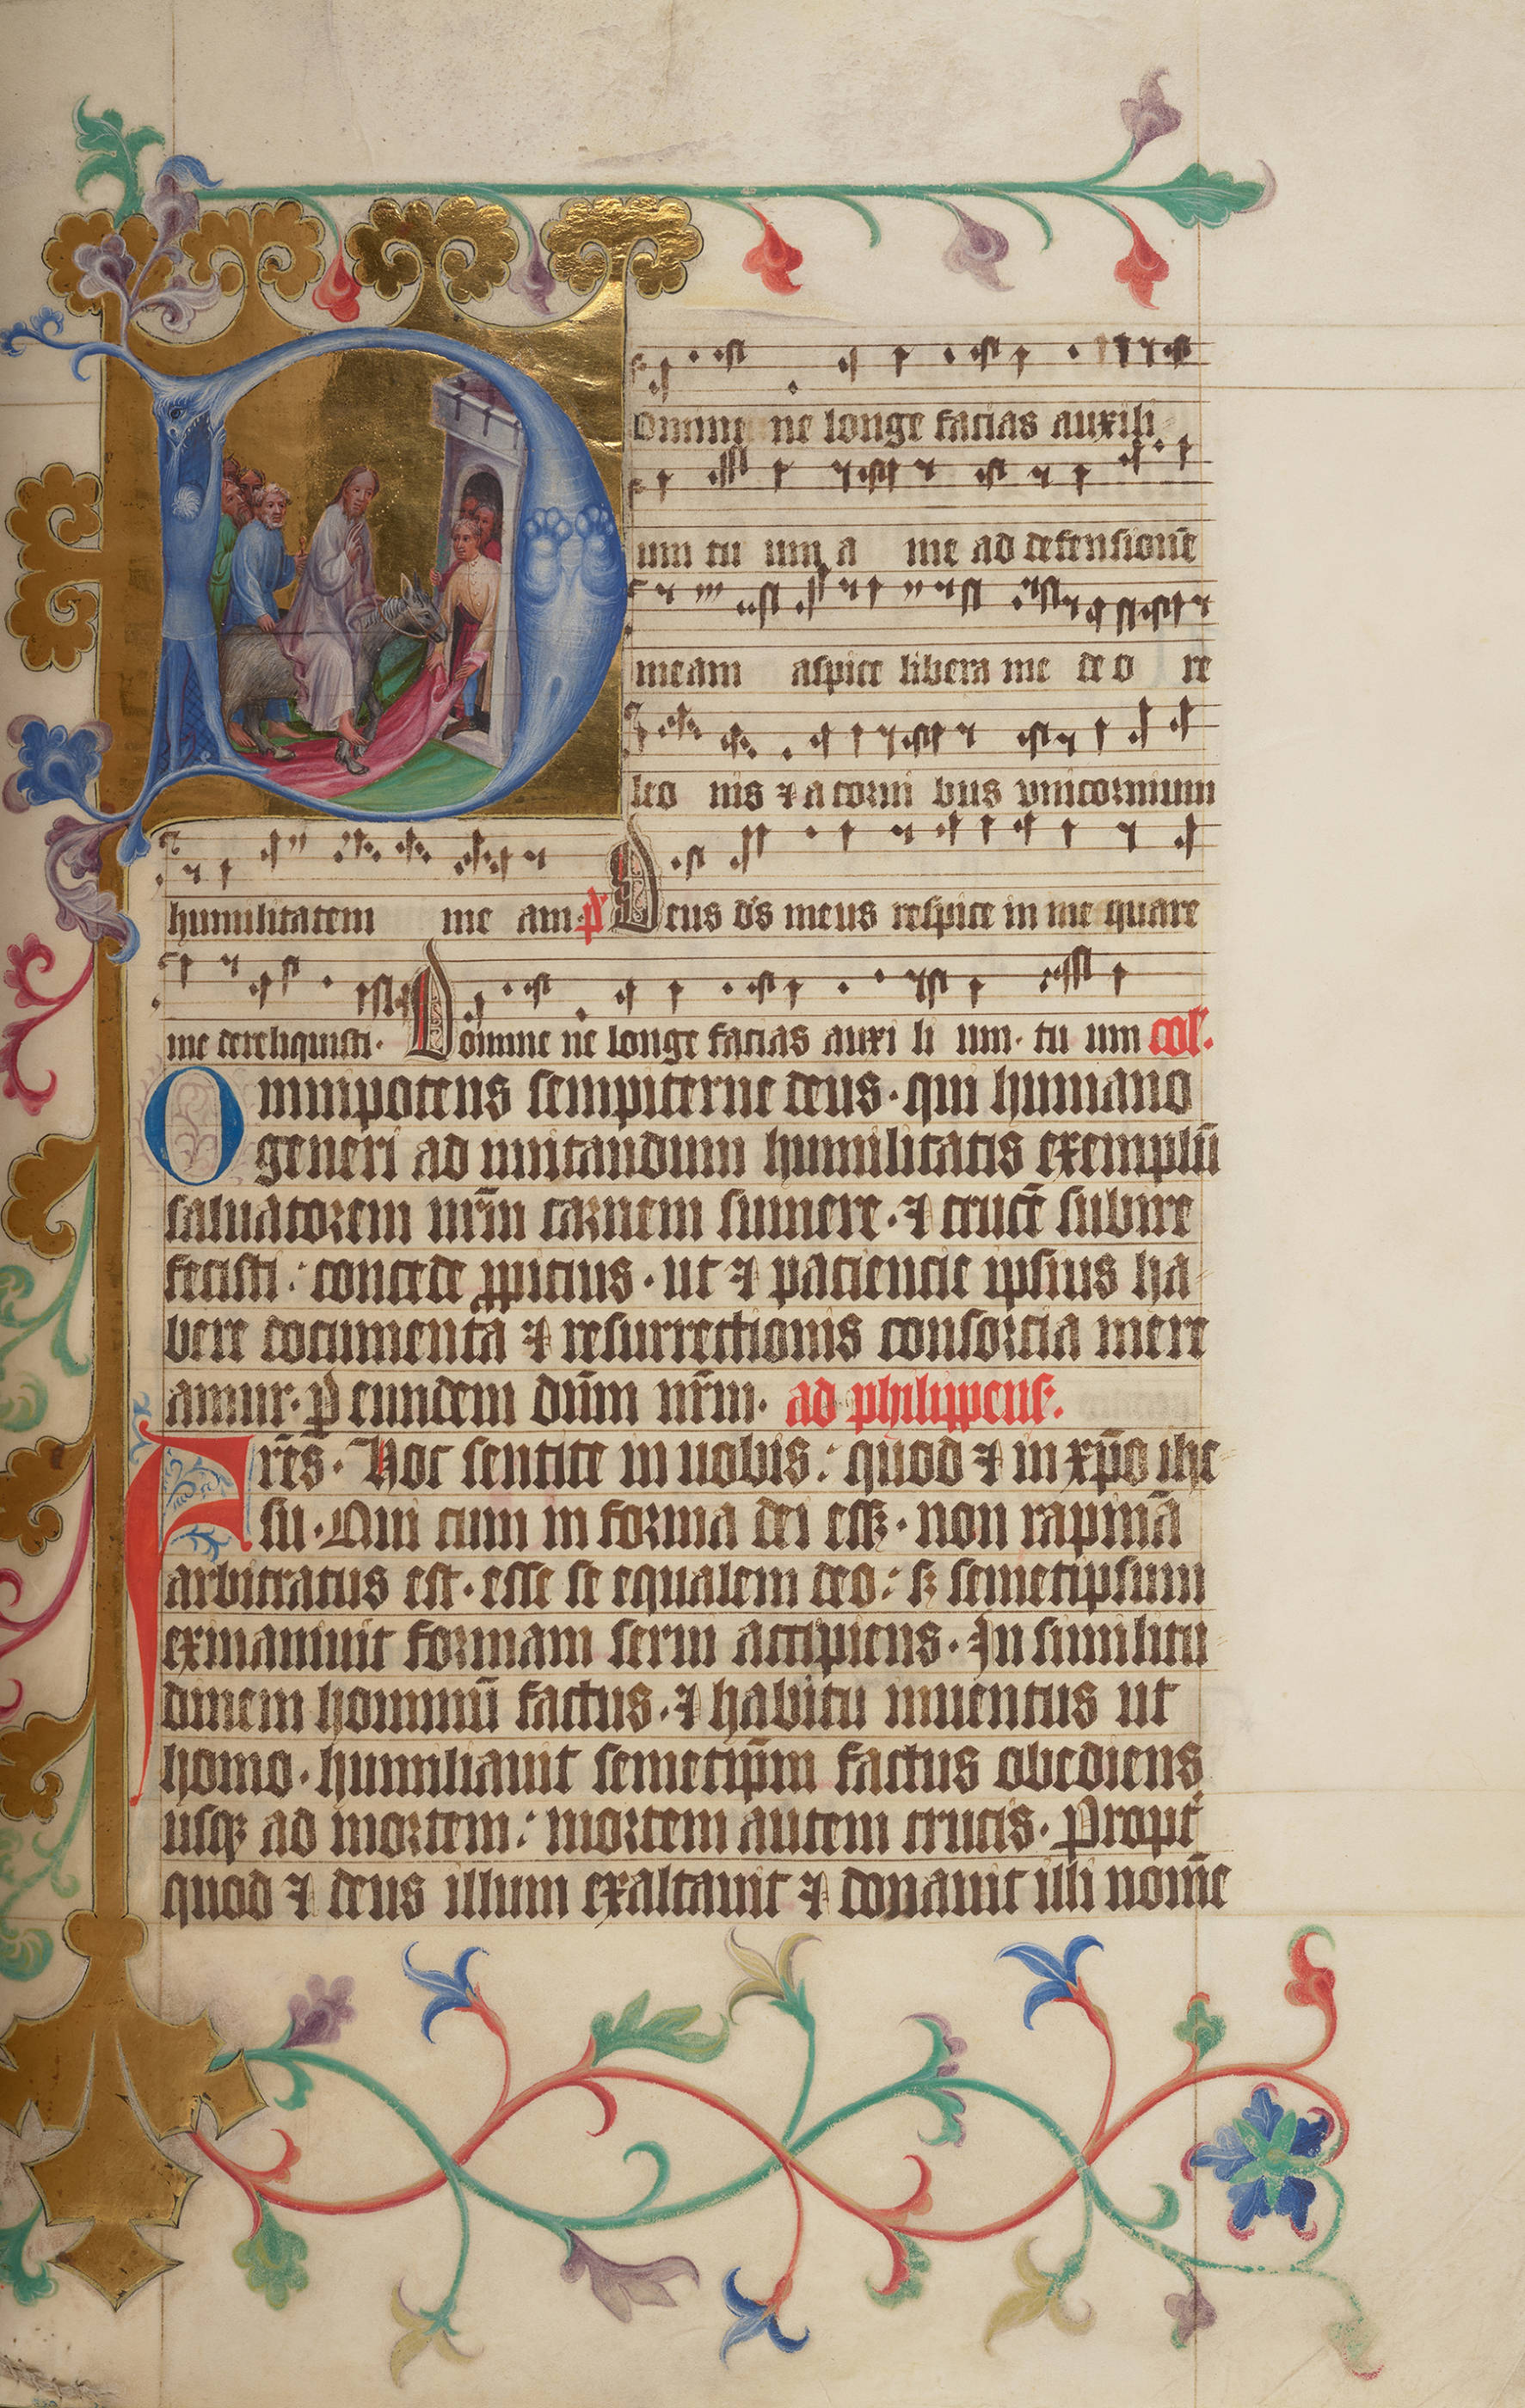 Domine ne longe facias auxili
um tu um a me ad defensionē
meam aspice libera me de o re
leo nis ⁊ a corni bus vnicornium
humilitatem me am. ps Deus ds̄ meus respice in me quare
me dereliquisti. Domine ne longe facias auxi li um. tu um col.
Omnipotens sempiterne deus. qui humano
generi ad imitandum humilitatis exemplū
saluatorem nr̄m carnem sumere. ⁊ crucē subire
fecisti: concede ꝓpicius. ut ⁊ paciencie ipsius ha
bere documenta ⁊ resurrectionis consorcia mere
amur. ꝑ eundem dūm nr̄m. ad philippens.
Fr̄es. Hoc sentite in uobis: quod ⁊ in xp̄o ihe
su. Qui cum in forma dei essꝫ. non rapinā
arbitratus est. esse se equalem deo: sꝫ semetipsum
exinaniuit formam serui accipiens. In similitu
dinem hominū factus. ⁊ habitu inuentus ut
homo. humiliauit semetip̄m factus obediens
usqꝫ ad mortem: mortem autem crucis. Propt̄
quod ⁊ deus illum exaltauit ⁊ donauit illi nom̄e